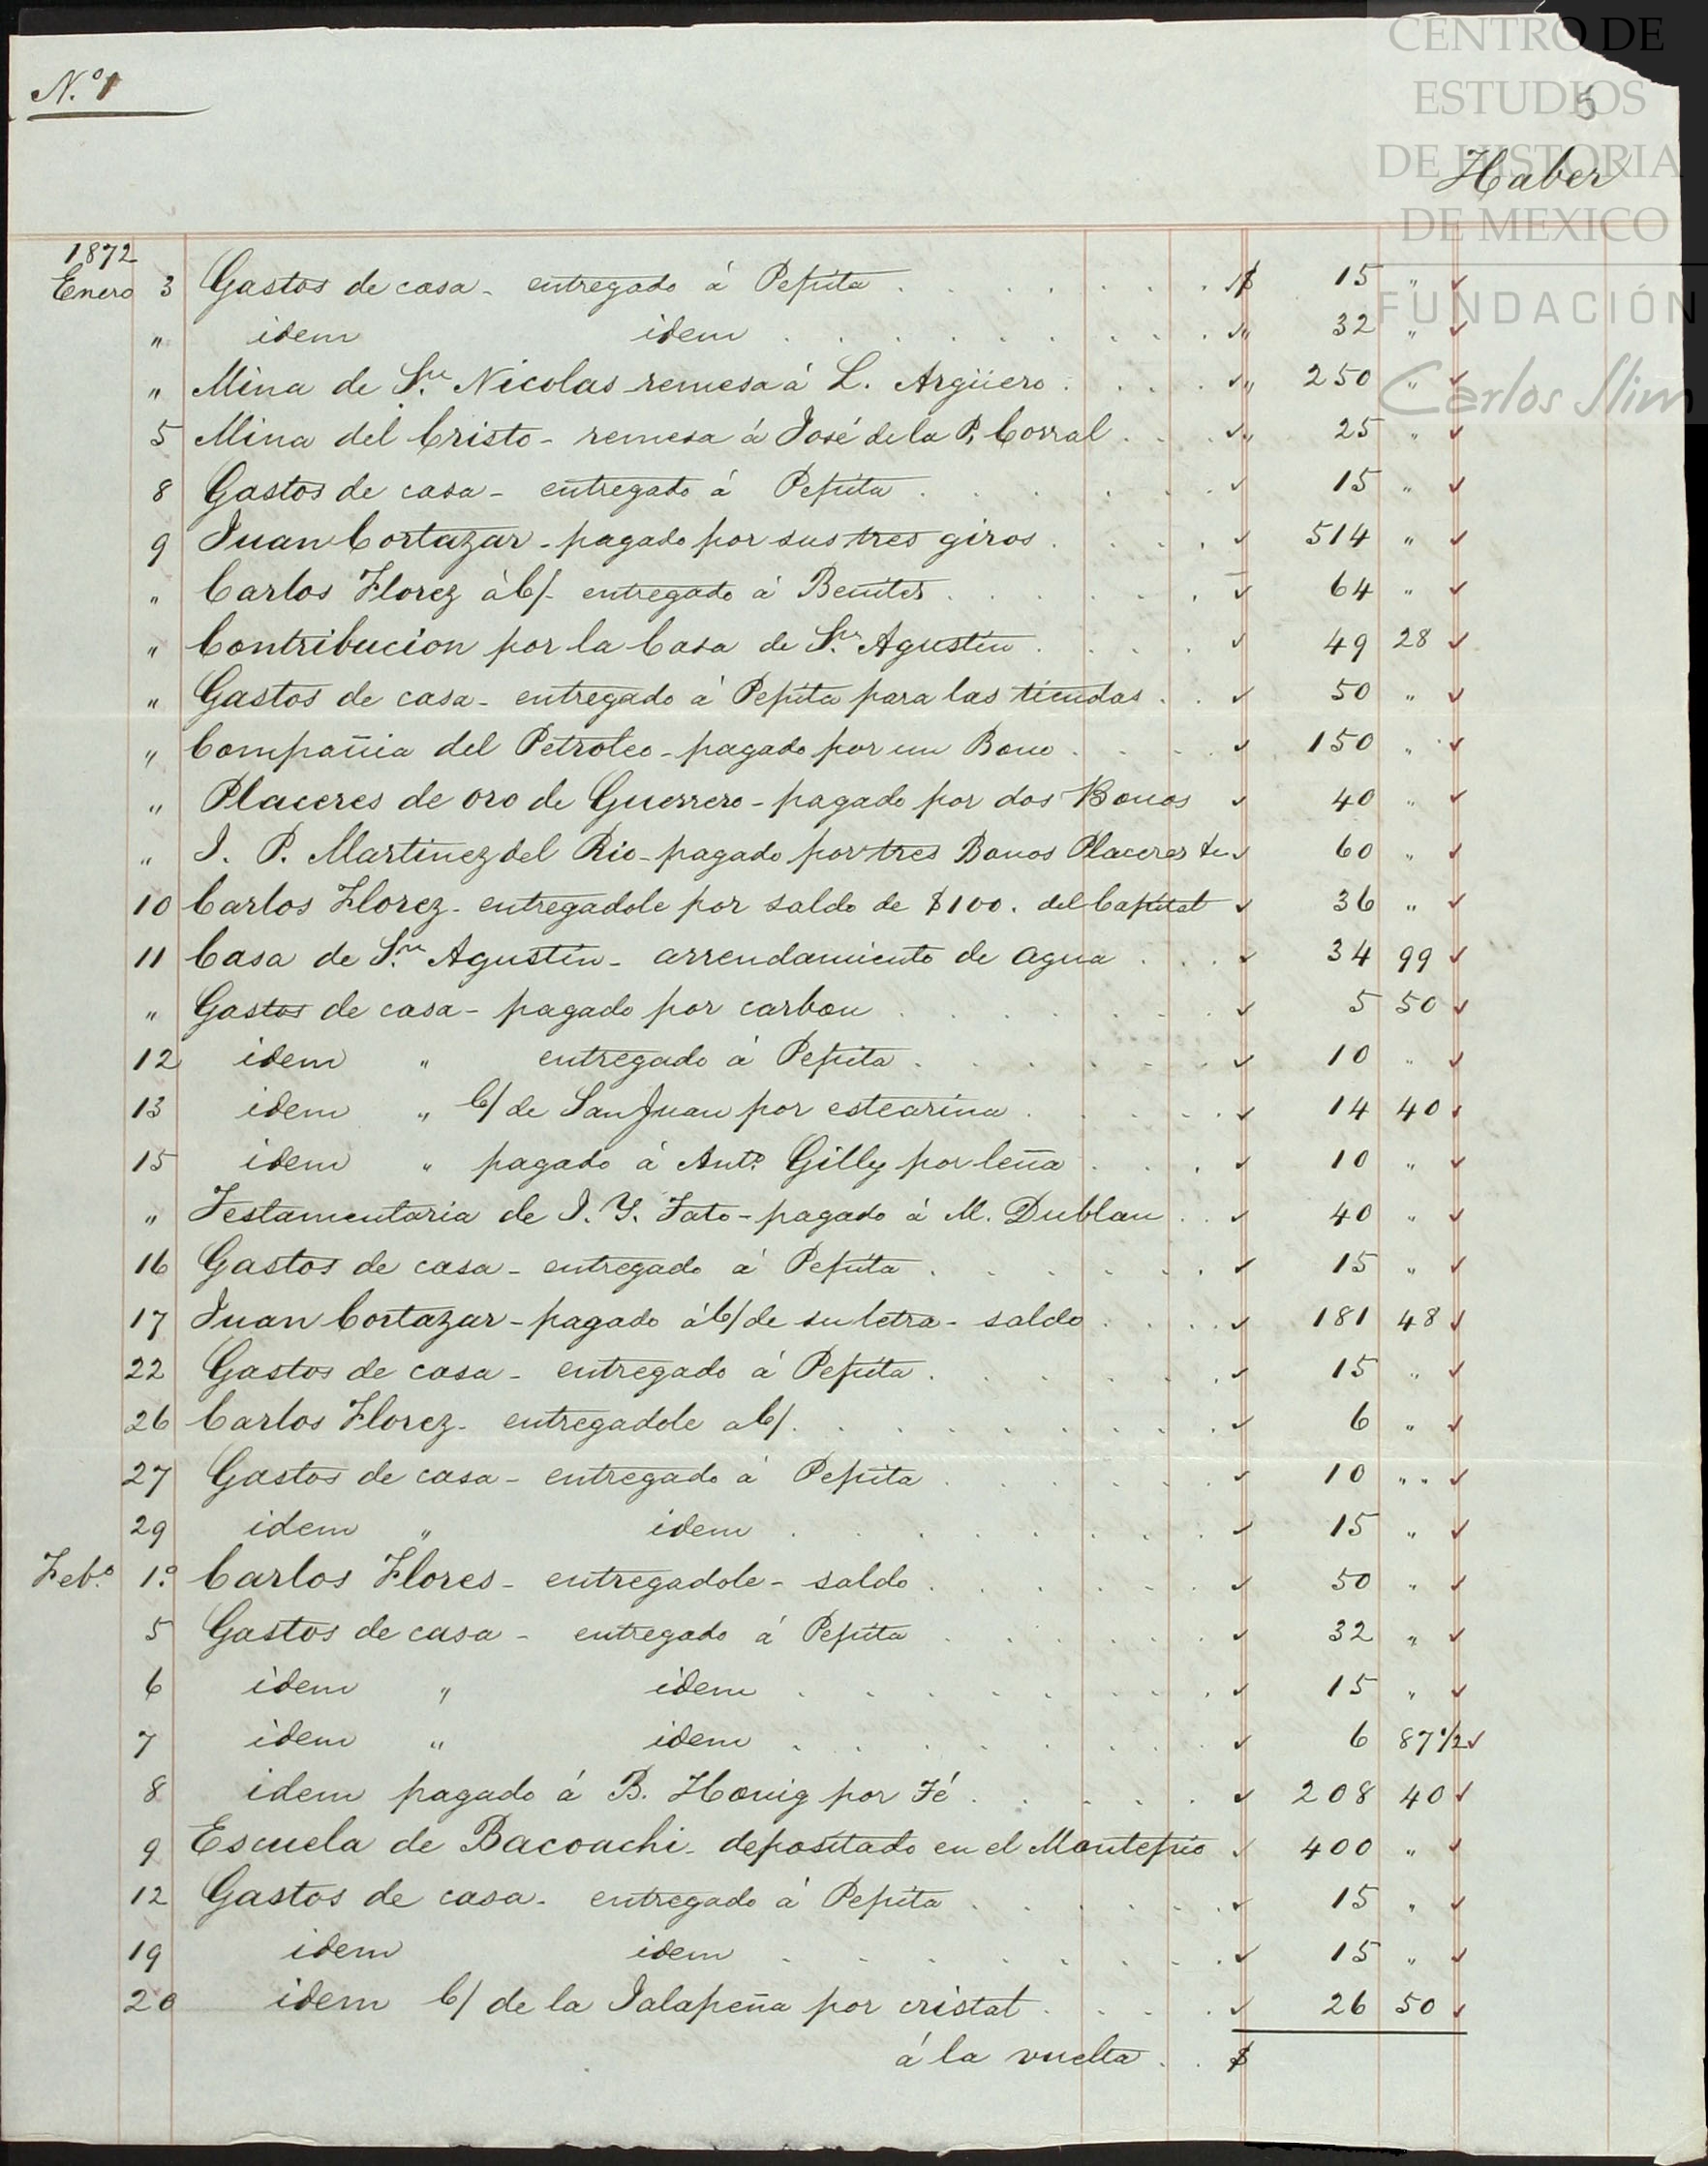 N.º 1
CENTRO DE
ESTUDIOS
DE HISTORIA
DE MEXICO
FUNDACIÓN
Carlos Slim
5
Haber
1872
Enero 3 Gastos de casa - entregado á Pepita . . . . . . . $ 15 "
" idem idem . . . . . . . . " 32 "
" Mina de Sn. Nicolas remesa á L. Argüero . . . . " 250 "
5 Mina del Cristo - remesa á José de la P. Corral . . . " 25 "
8 Gastos de casa - entregado á Pepita . . . . . . 15 "
9 Juan Cortazar - pagado por sus tres giros . . . . 514 "
" Carlos Florez á C/ - entregado á Benites . . . . . . 64 "
" Contribucion por la Casa de Sn. Agustin . . . . 49 28
" Gastos de casa - entregado á Pepita para las tiendas . . 50 "
" Compañia del Petroleo - pagado por un Bono . . . . 150 "
" Placeres de oro de Guerrero - pagado por dos Bonos 40 "
" J. P. Martinez del Rio - pagado por tres Bonos Placeres &. 60 "
10 Carlos Florez - entregadole por saldo de $100. del Capital 36 "
11 Casa de Sn. Agustin - arrendamiento de agua . . . 34 99
" Gastos de casa - pagado por carbon . . . . . . 5 50
12 idem " entregado á Pepita . . . . . . 10 "
13 idem " C/ de San Juan por estearina . . . . . 14 40
15 idem " pagado á Anto. Gilly por leña . . . 10 "
" Testamentaria de J. Y. Fato - pagado á M. Dublan . . 40 "
16 Gastos de casa - entregado á Pepita . . . . . . 15 "
17 Juan Cortazar - pagado á C/ de su letra - saldo . . . . 181 48
22 Gastos de casa - entregado á Pepita . . . . . . 15 "
26 Carlos Florez - entregadole a C/ . . . . . . . . 6 "
27 Gastos de casa - entregado á Pepita . . . . . . 10 " "
29 idem " idem . . . . . . . 15 "
Febo. 1.º Carlos Flores - entregadole - saldo . . . . . . 50 "
5 Gastos de casa - entregado á Pepita . . . . . . 32 "
6 idem " idem . . . . . . . 15 "
7 idem " idem . . . . . . . 6 87 1/2
8 idem pagado á B. Honig por Fé . . . . . 208 40
9 Escuela de Bacoachi - depositado en el Montepio 400 "
12 Gastos de casa - entregado á Pepita . . . . . . 15 "
19 idem idem . . . . . . . 15 "
20 idem C/ de la Jalapeña por cristal . . . . 26 50
á la vuelta . . $